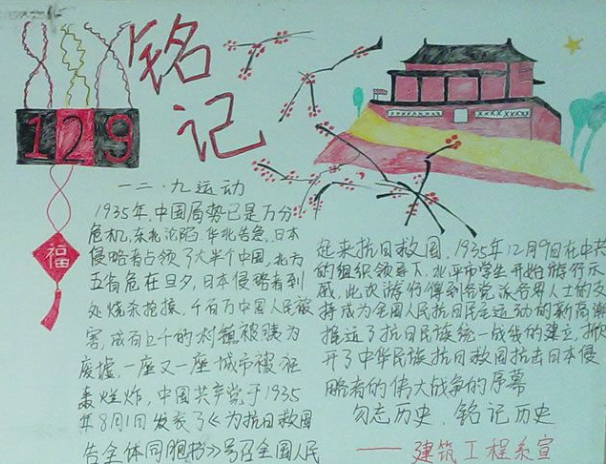 铭记
129
福
一二·九运动
1935年,中国局势已是万分
危机,东北沦陷,华北告急,日本
侵略者占领了大半个中国,北方
五省危在旦夕,日本侵略者到
处烧杀抢掠,千百万中国人民被
害,成百上千的村镇被
废墟,一座又一座城市被
轰炸,中国共产党于1935
年8月1日发表了《为抗日救国
告全体同胞书》号召全国人民
起来抗日救国,1935年12月9日在中共
的组织领导下,北平市学生开始游行示
威,此次游行得到各党派各界人士的支
持成为全国人民抗日民主运动的新高潮
推
了抗日民族统一战线的建立,掀
开了中华民族抗日救国抗击日本侵
略者的伟大战争的序幕
勿忘历史,铭记历史
——建筑工程系宣